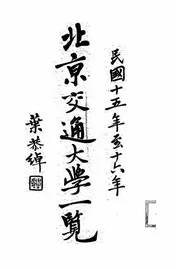 民國十五年至十六年
北京交通大學一覽
葉恭綽